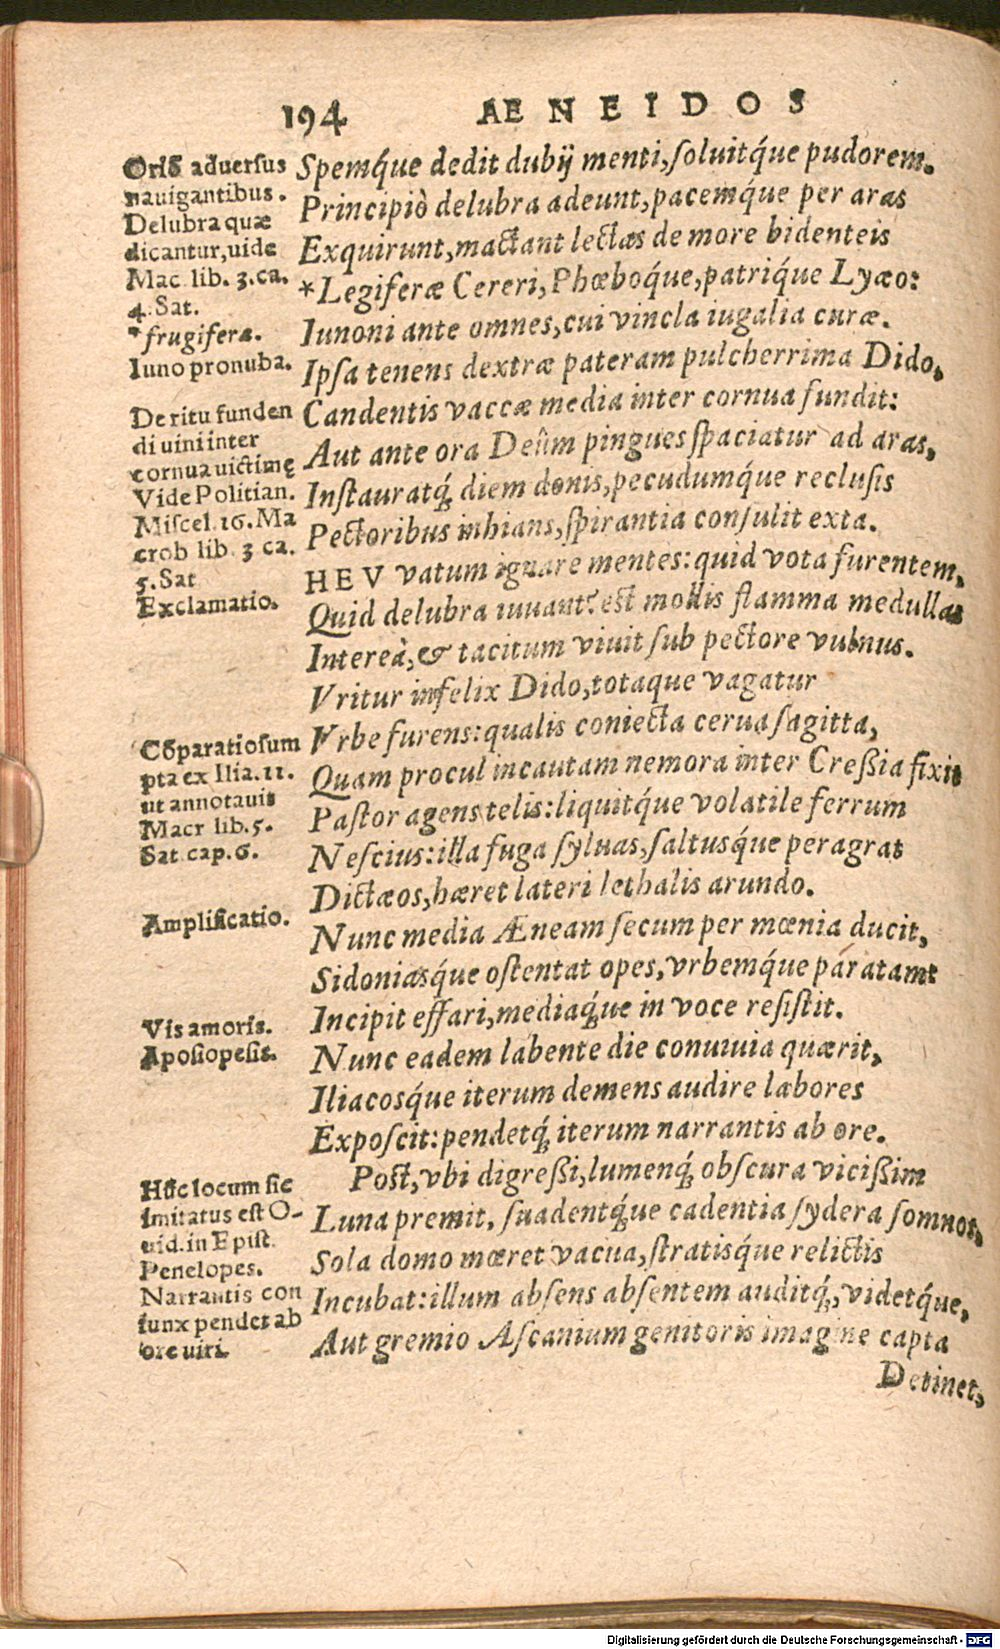 194 AENEIDOS
Oriō adversus
nauigantibus.
Delubra quæ
dicantur, uide
Mac lib. 3. ca.
4. Sat.
* frugiferæ.
Iuno pronuba.
De ritu funden
di uini inter
cornua uictimę
Vide Politian.
Miscel. 16. Ma
crob lib. 3 ca.
5. Sat
Exclamatio.
Cōparatio sum
pta ex Ilia. 11.
ut annotauit
Macr lib. 5.
Sat cap. 6.
Amplificatio.
Vis amoris.
Aposiopesis.
Hūc locum sic
imitatus est O-
uid. in Epist.
Penelopes.
Narrantis con
iunx pendet ab
ore uiri.
Spemq́ue dedit dubij menti, ſoluitq́ue pudorem.
Principiò delubra adeunt, pacemq́ue per aras
Exquirunt, mactant lectas de more bidenteis
*Legiferæ Cereri, Phœboq́ue, patriq́ue Lyæo:
Iunoni ante omnes, cui vincla iugalia curæ.
Ipſa tenens dextræ pateram pulcherrima Dido,
Candentis vaccæ media inter cornua fundit:
Aut ante ora Deûm pingues ſpaciatur ad aras,
Inſtauratq́; diem donis, pecudumq́ue recluſis
Pectoribus inhians, ſpirantia conſulit exta.
HEV vatum ignare mentes: quid vota furentem,
Quid delubra iuuant? eſt mollis flamma medullas
Intereà, & tacitum viuit ſub pectore vulnus.
Vritur infelix Dido, totaque vagatur
Vrbe furens: qualis coniecta cerua ſagitta,
Quam procul incautam nemora inter Creßia fixit
Paſtor agens telis: liquitq́ue volatile ferrum
Neſcius: illa fuga ſyluas, ſaltusq́ue peragrat
Dictæos, hæret lateri lethalis arundo.
Nunc media Æneam ſecum per mœnia ducit,
Sidoniasq́ue oſtentat opes, vrbemq́ue paratam:
Incipit effari, mediaq́ue in voce reſiſtit.
Nunc eadem labente die conuiuia quærit,
Iliacosq́ue iterum demens audire labores
Expoſcit: pendetq́; iterum narrantis ab ore.
Poſt, vbi digreßi, lumenq́; obſcura vicißim
Luna premit, ſuadentq́ue cadentia ſydera ſomnos,
Sola domo mœret vacua, ſtratisq́ue relictis
Incubat: illum abſens abſentem auditq́;, videtq́ue,
Aut gremio Aſcanium genitoris imagine capta
Detinet,
Digitalisierung gefördert durch die Deutsche Forschungsgemeinschaft - DFG